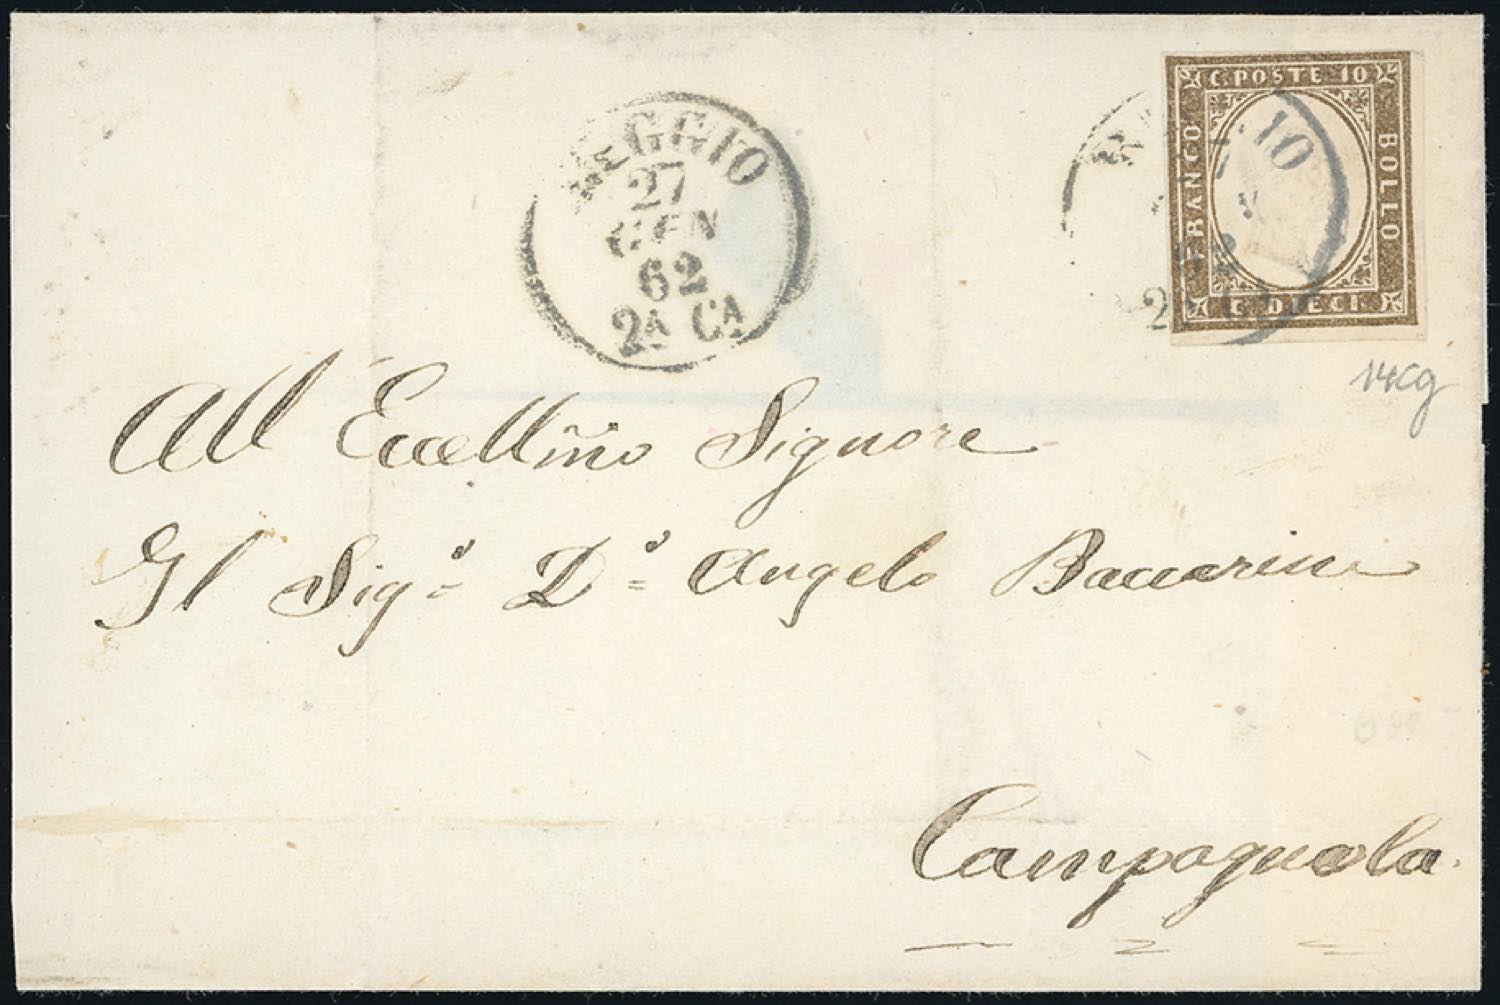 C. POSTE 10
FRANCO
BOLLO
C. DIECI.
REGGIO
27
GEN
62
2A CA
14Cg
All Eccellm̃o Signore
Il Sig.r D.r Angelo Baccarini
Campagnola.